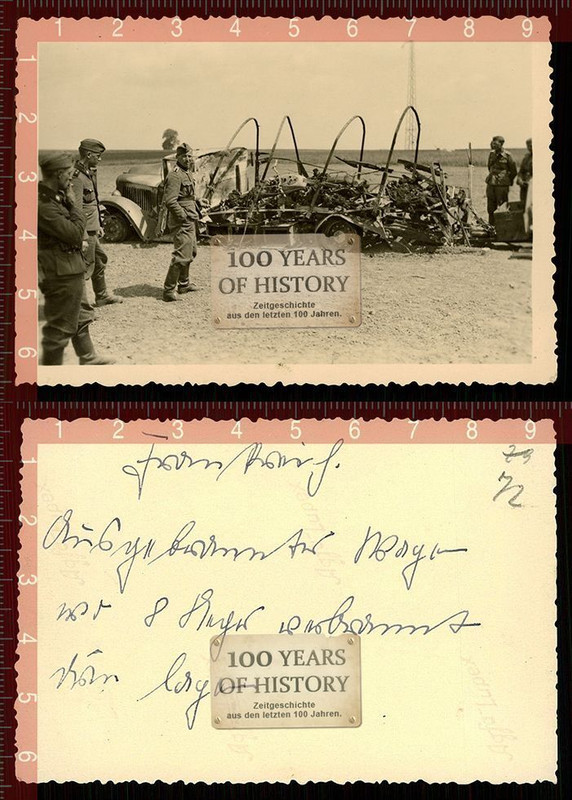 1 2 3 4 5 6 7 8 9
1
2
3
4
5
6
100 YEARS
OF HISTORY
Zeitgeschichte
aus den letzten 100 Jahren.
1 2 3 4 5 6 7 8 9
1
2
3
4
5
6
Frankreich.
72
Ausgebrannter Wagen
wo 8 Neger verbrannt
drin lagen
100 YEARS
OF HISTORY
Zeitgeschichte
aus den letzten 100 Jahren.
Agfa Lupex